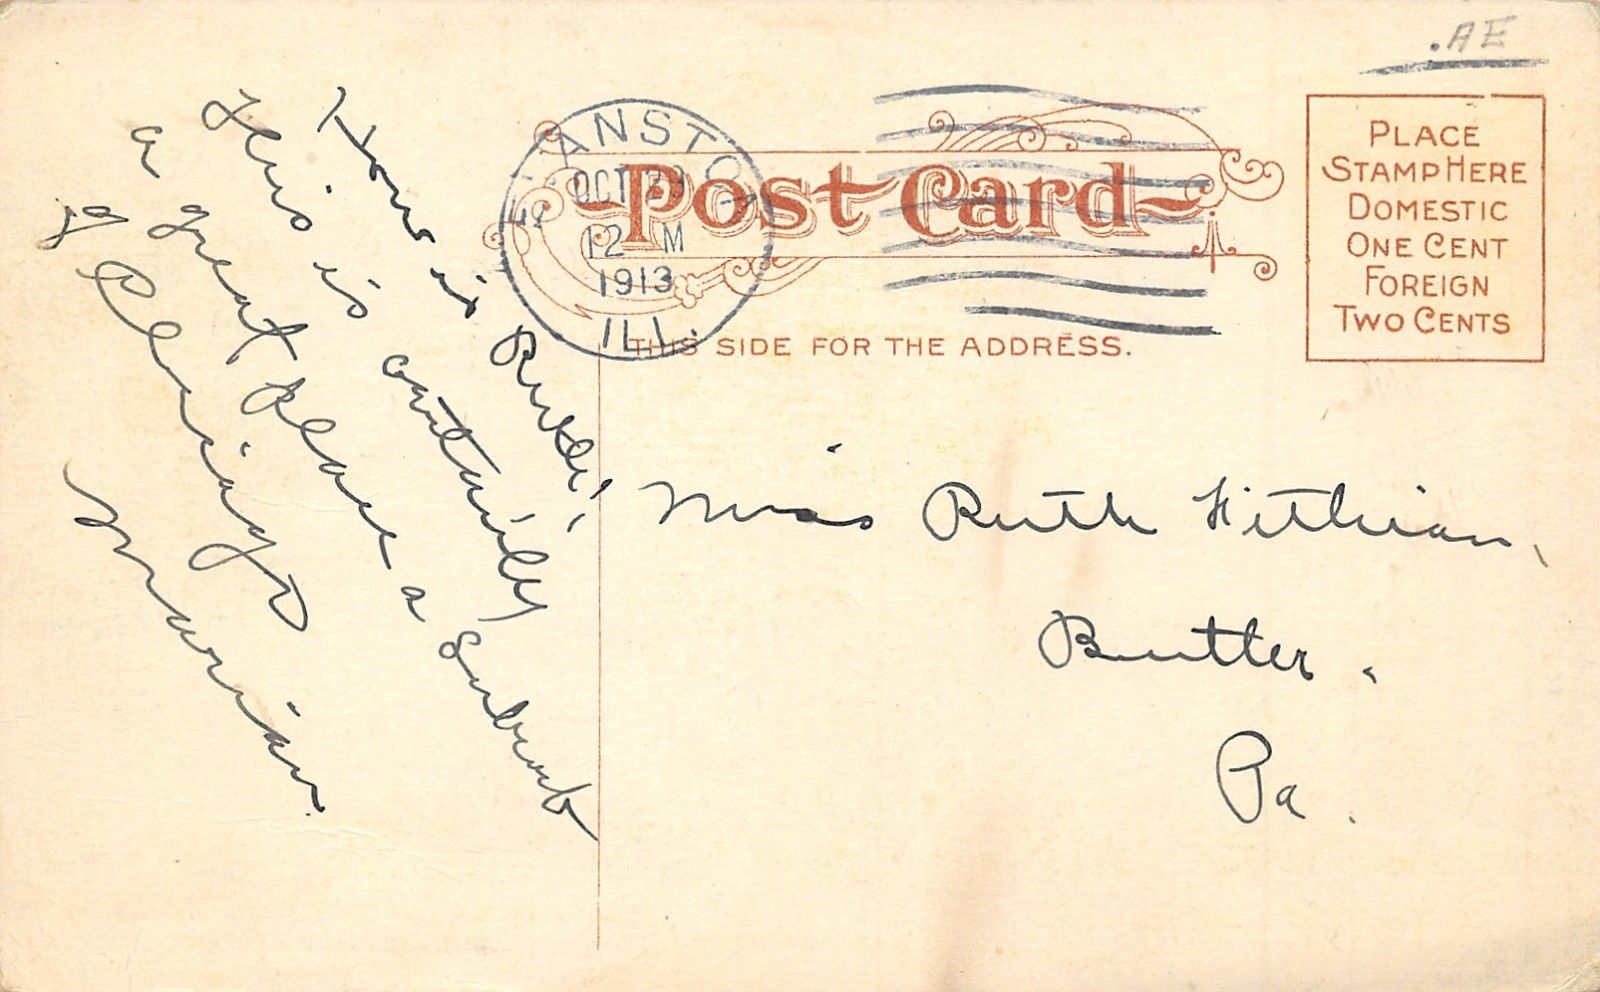 .AE
Post Card
PLACE
STAMP HERE
DOMESTIC
ONE CENT
FOREIGN
TWO CENTS
ANSTON
OCT 29
12 M
1913
ILL.
THIS SIDE FOR THE ADDRESS.
How is Ruth!
This is certainly
a great place a suburb
of Chicago
Marian.
Miss Ruth
Butler.
Pa.